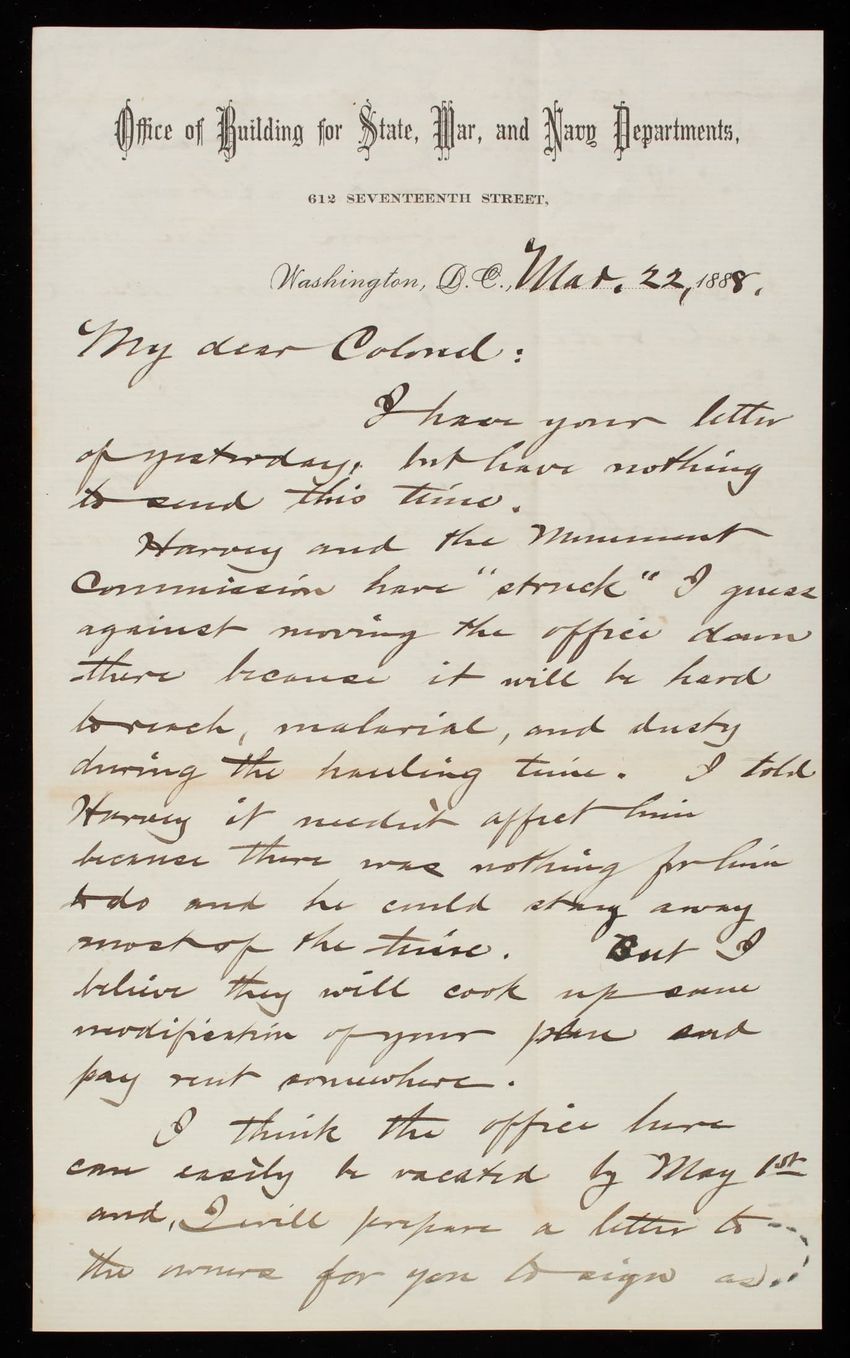 Office of Building for State, War, and Navy Departments,
612 SEVENTEENTH STREET,
Washington, D. C., Mar. 22, 1888.
My dear Colonel:
I have your letter
of yesterday, but have nothing
to send this time.
Harvey and the Monument
Commission have "struck" I guess
against moving the office down
there because it will be hard
to reach, malarial, and dusty
during the hauling time. I told
Harvey it needn't affect him
because there was nothing for him
to do and he could stay away
most of the time. But I
believe they will cook up some
modification of your plan and
pay rent somewhere.
I think the office here
can easily be vacated by May 1st
and, I will prepare a letter to
the owners for you to sign as